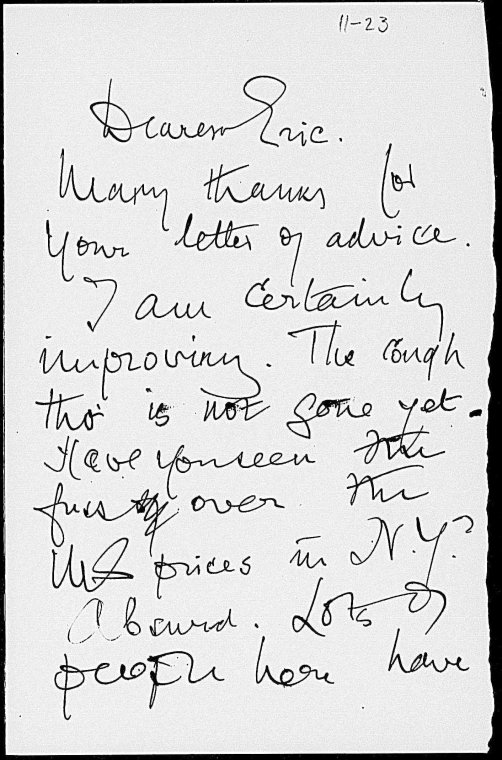 11-23
Dearest Eric.
Many thanks for
your letter of advice.
I am certainly
improving. The cough
tho' is not gone yet.
Have you seen the
fuss over the
MS prices in N.Y.?
Absurd. Lots of
people here have